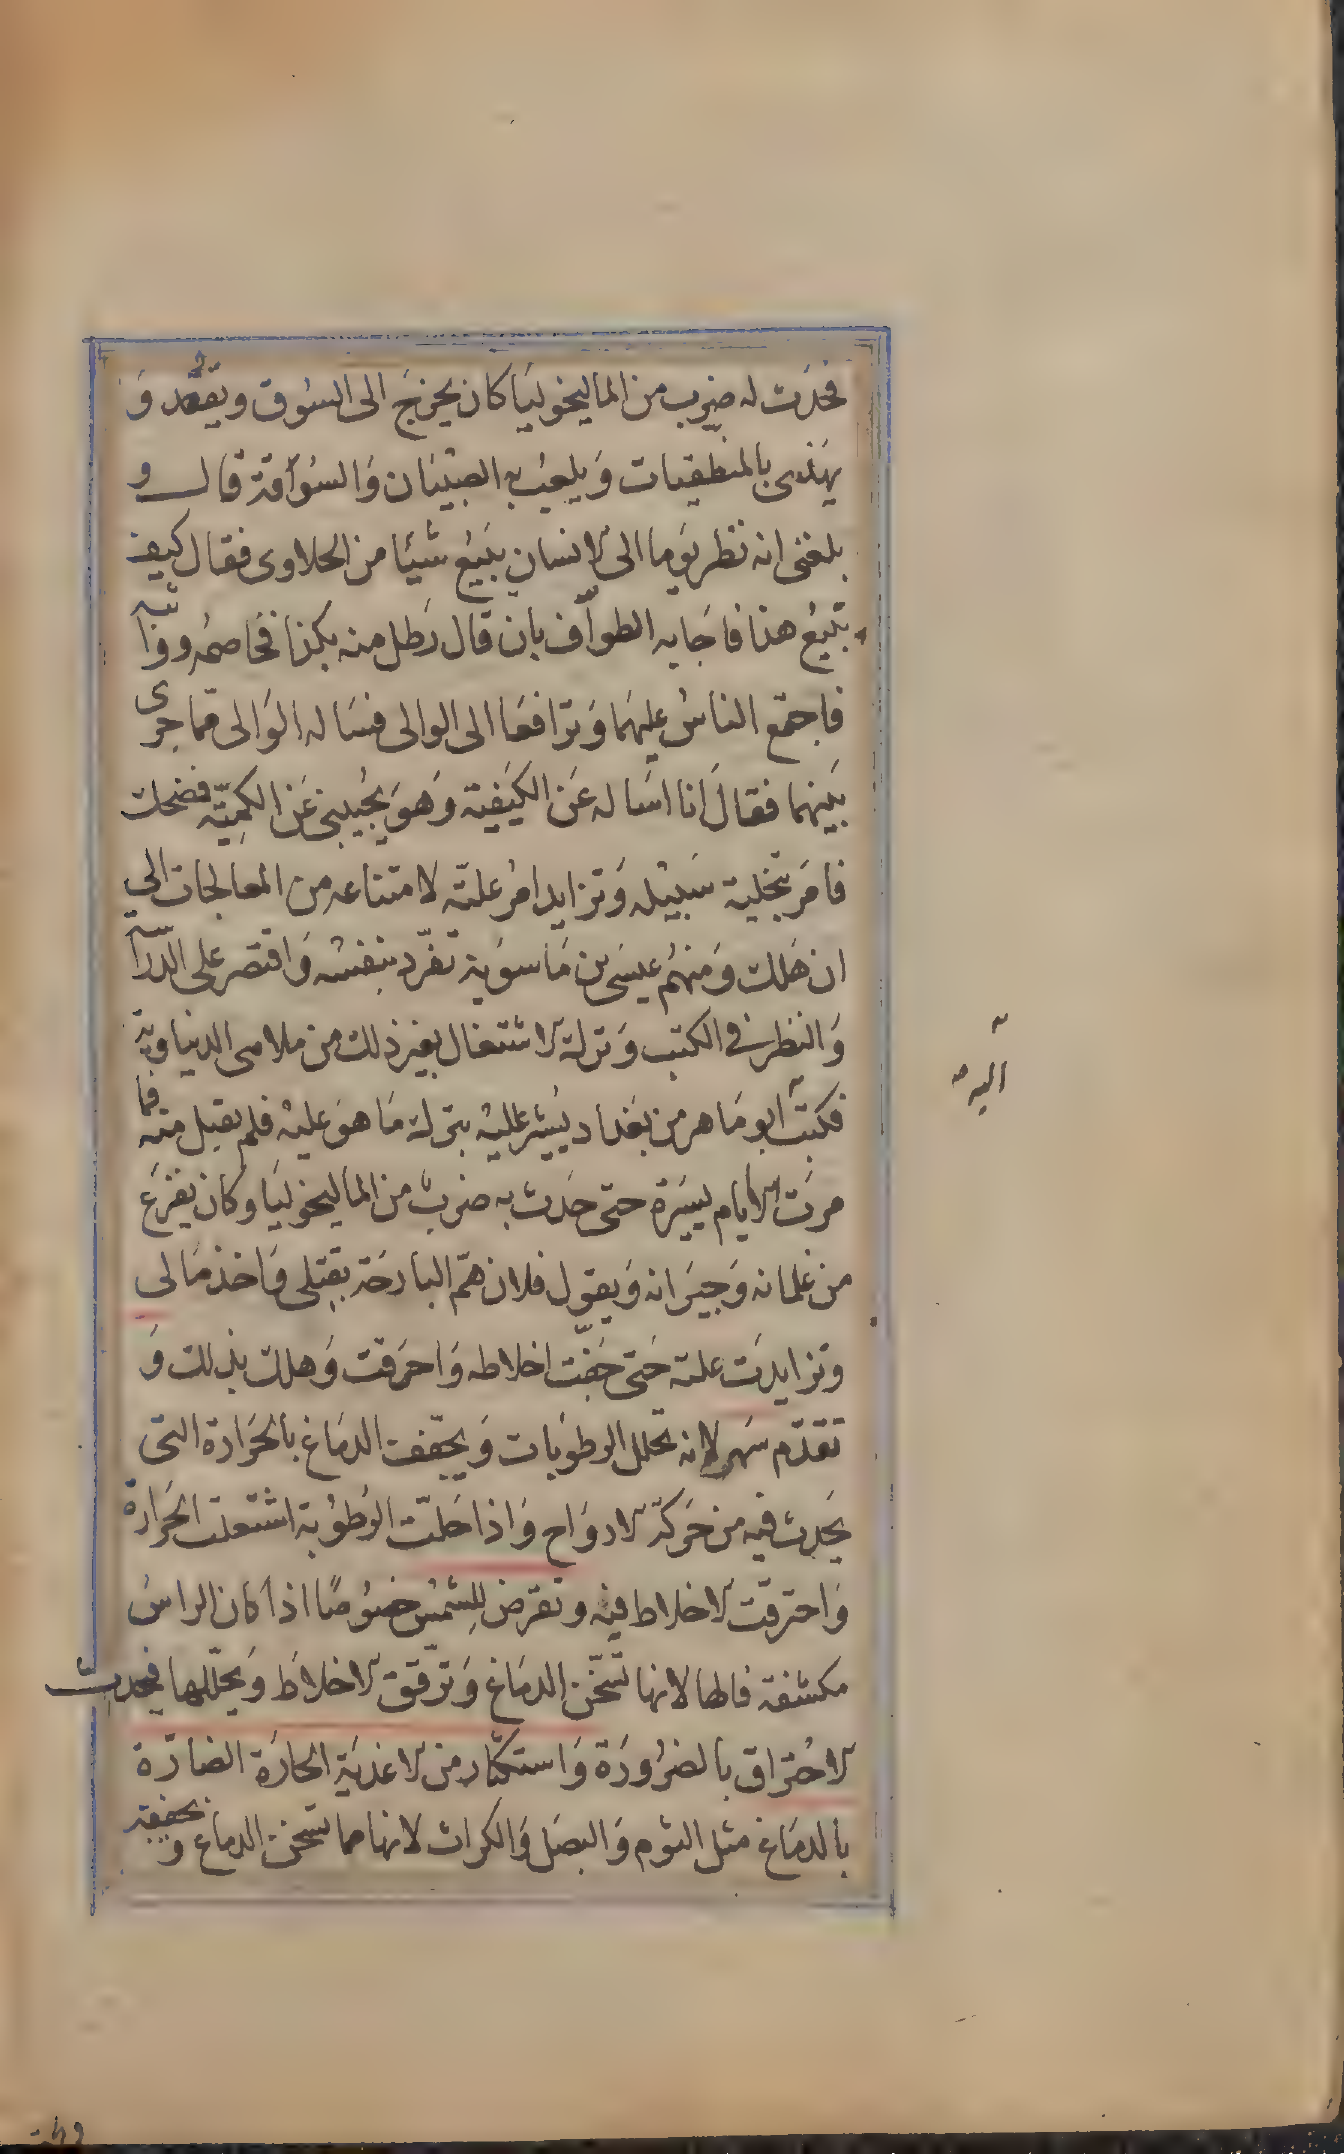 فحدَت له ضرب من الماليخوليَا كان يخرجَ الى السُوق ويقعُد وَ
يهَذى بالمنطقيات وَيلعبُ به الصبيَان وَالسُوآقة قال و
بلغنى انه نظر يَوما الى الانسان يَبيَع شيئا من الحلاوى فقال كيف
تبيعُ هذا فاجَابه الطوّاف بان قال رَطل منه بكذا فخَاصمُه وواثبه
فاجتمَع الناسُ عليهمَا وَترَافعَا الى الوالى فسَاله الوَالى مّما جرى
بَينهما فقالَ انا اسَاله عَن الكيَفية وَهوَ يجُيبنى عَن الكميّة فضحك
فامَر بتخلية سَبيْله وَتزايد امرُ علتّه لامتناعه من المعالجات الى
ان هَلك وَمنهُم عيسَى بن مَاسوَية تفّرد بنفسْه وَاقتصَر على الدراسة
وَالنظر فى الكتب وَترك الاشتغال بغير ذلك من ملاهى الدنياوية
فكتبَ آبو مَاهر من بغداد يُشير عليْه بترك مَا هوَ عليْه فلم يقبل منه فما
مرَت الايام يسيَرة حتى حَدث به ضربٌ من الماليخوليَا وكان يفزعَ
من غلمانه وَجيرَانه وَيقول فلان همّ البَارحَة بِقتلى وَاخذ مَالى
وتزايدَت علته حَتى جَفّت اخلاطه وَاحرَقت وَهلك بذلك وَ
تقدّم سَهر لانه يحّلل الرطوُبات وَيجّفف الدمَاغ بالحَرَارة التى
يَحدث فيه من حَركة الارواح وَاذا حَللّت الرطوُبة اشتعلت الحَرارة
وَاحترقَت الاخلاط فيْه وتعّرض للشمْسْ خصوُصًا اذا كان الراسُ
مكشفة فالها لانها تسَخّن الدمَاغ وَترّقق الاخلاَط وَيحّللها فيحدث
الاحُتراق بالضرُورَة وَاستكثار من الاغذيَة الحارَة الضارّة
بالدمَاغ مثل الثوم وَالبصَل وَالكراث لانها مما تسخن الدماغ و يجففه